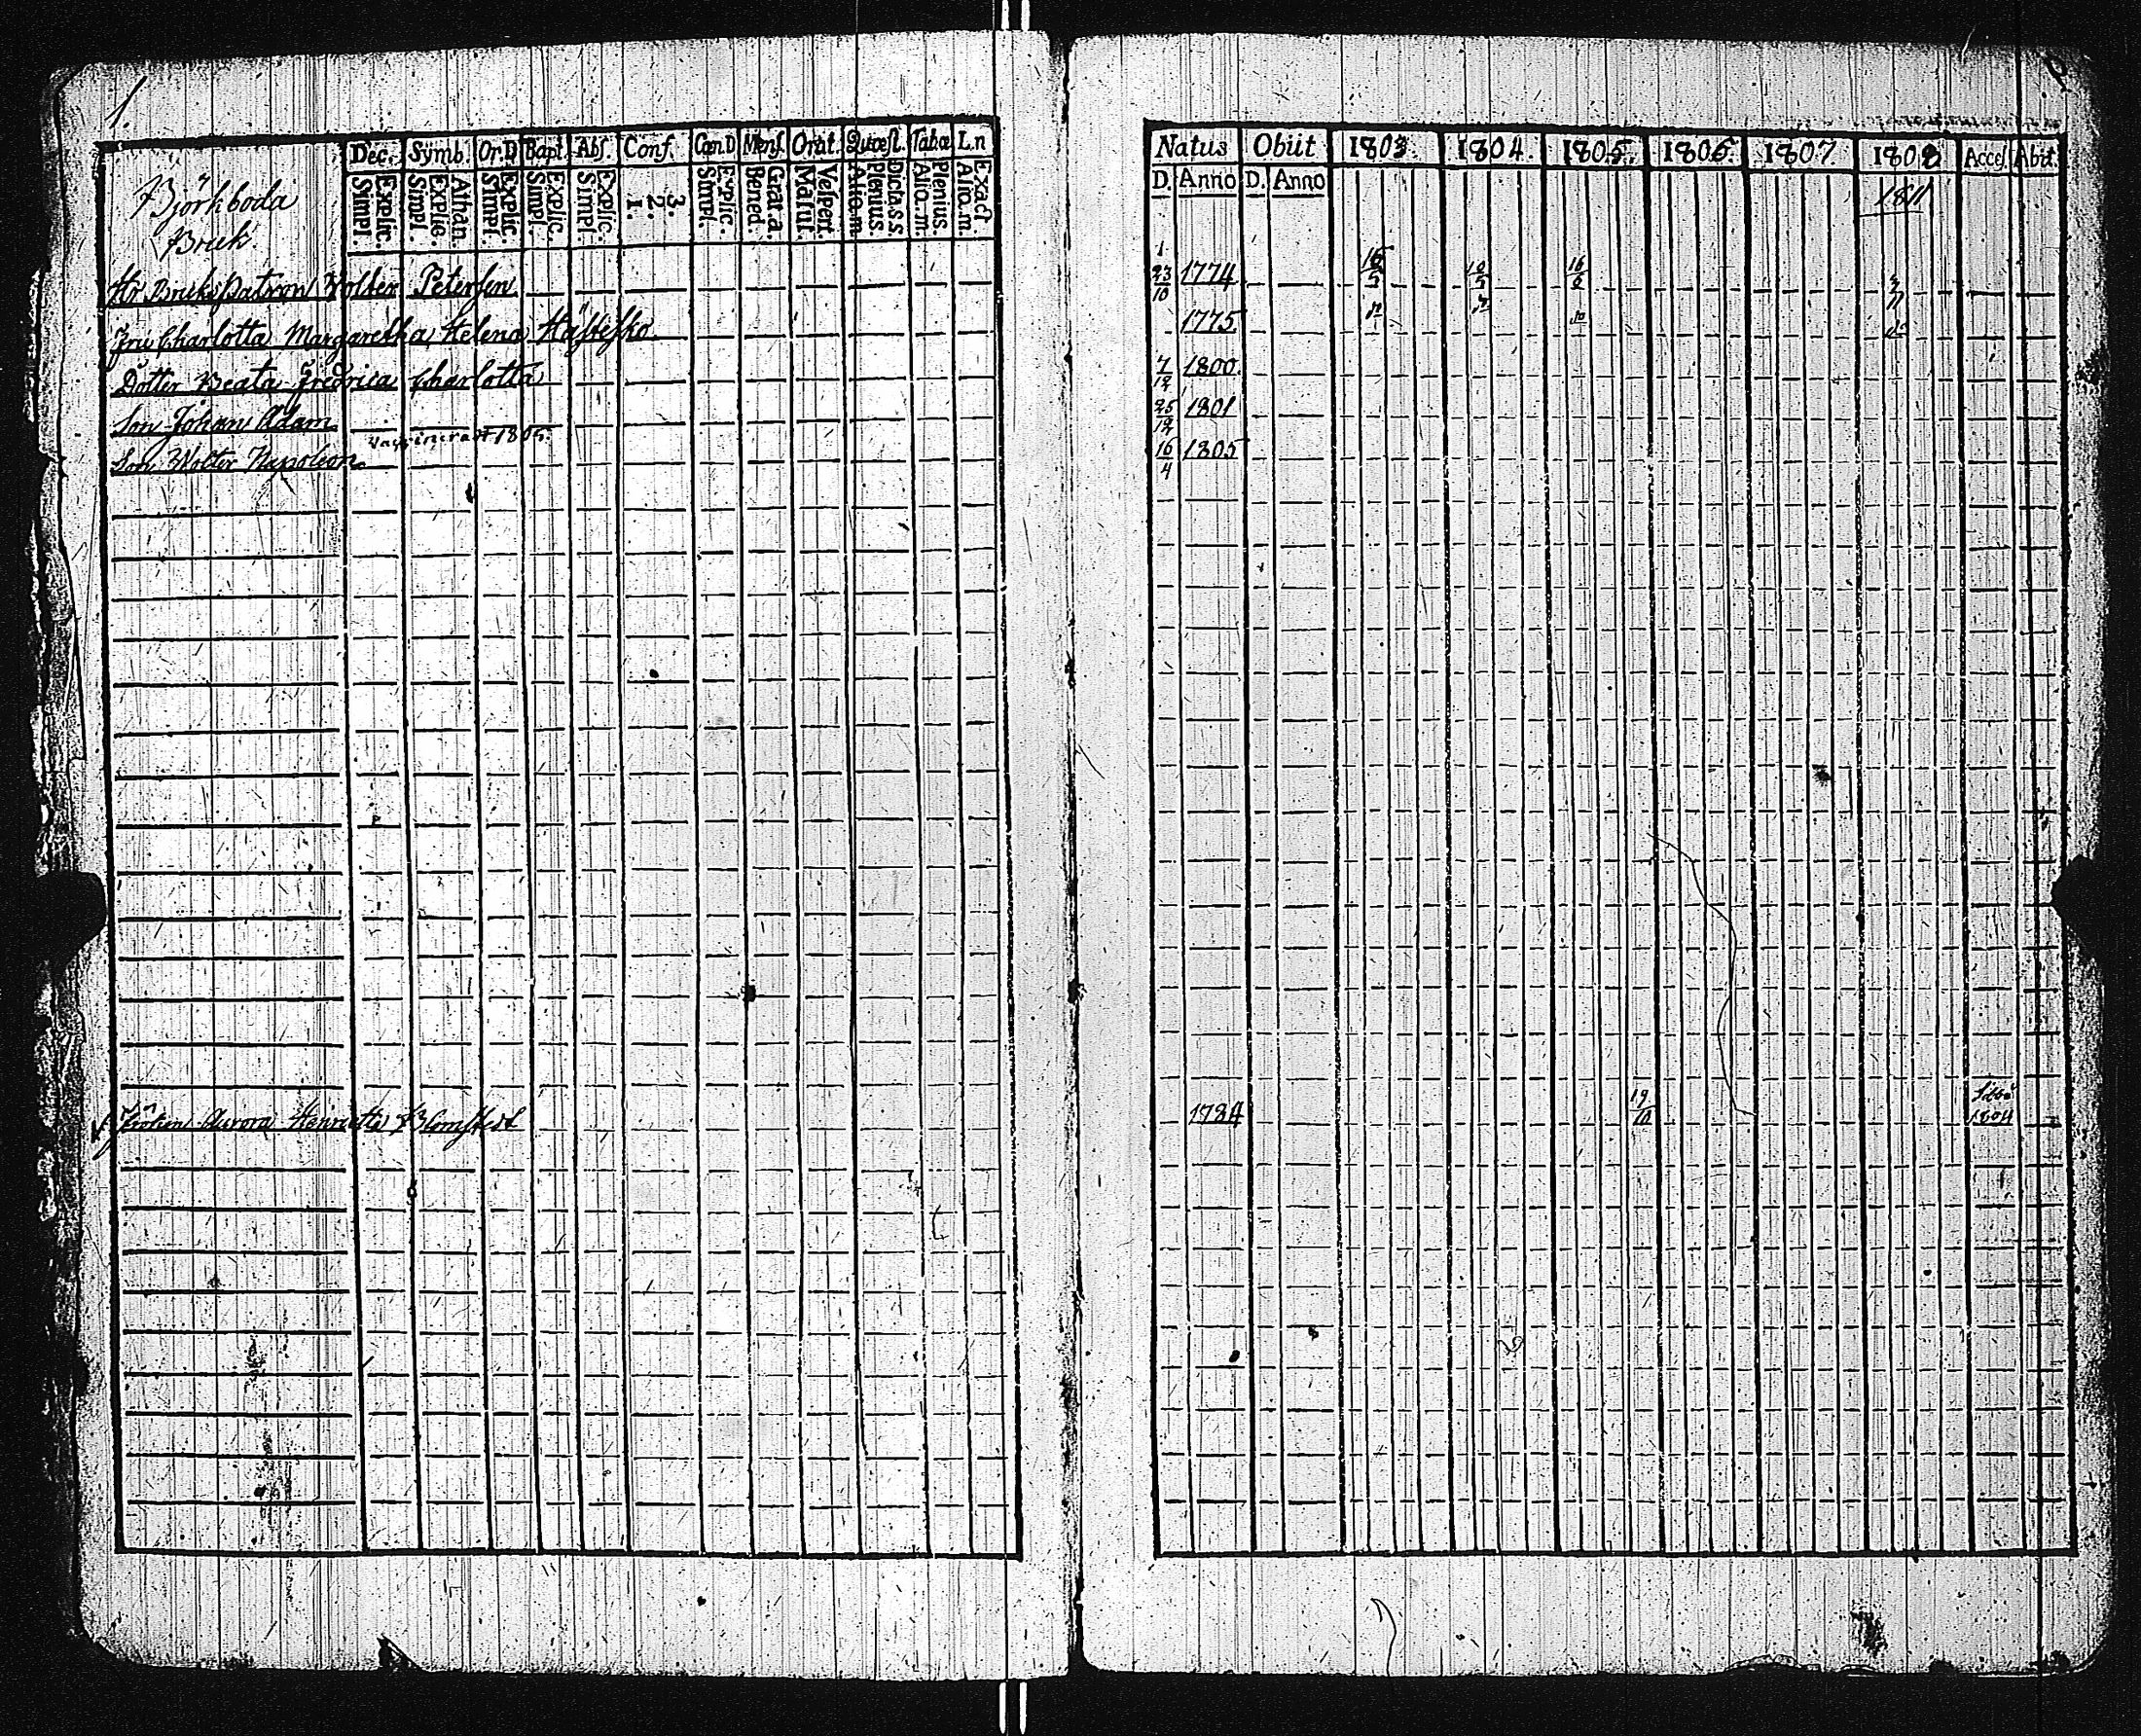 1.
Björkboda
Bruk
Dec. Symb. Or.D Bapt. Abs. Conf. Cœn.D Mens. Orat. Quæst. Tabœ L.n
Explic. Simpl. Athan. Explic. Simpl. Explic. Simpl. Explic. Simpl. Explic. Simpl. 3. 2. 1. Explic. Simpl. Grat.a. Bened. Vespert. Matut. Dicta.s.s. Plenius. Alio.m. Plenius. Alio.m. Exact. Alio.m.
Natus Obiit 1803 1804. 1805. 1806. 1807 1808 Acces. Abiit.
D. Anno D. Anno 1811
Hr Bruks Patron Wolter Petersen 23/10 1774 16/5 16/9
Fru Charlotta Margaretha Helena Hästesko 1775
Dotter Beata Fredrica Charlotta 7/12 1800
Son Johan Adam 25/12 1801
Vaccinerad 1805.
Son Wolter Napoleon 16/4 1805
Fröken Aurora Henrietta Blomfelt 1784 19/10 1804